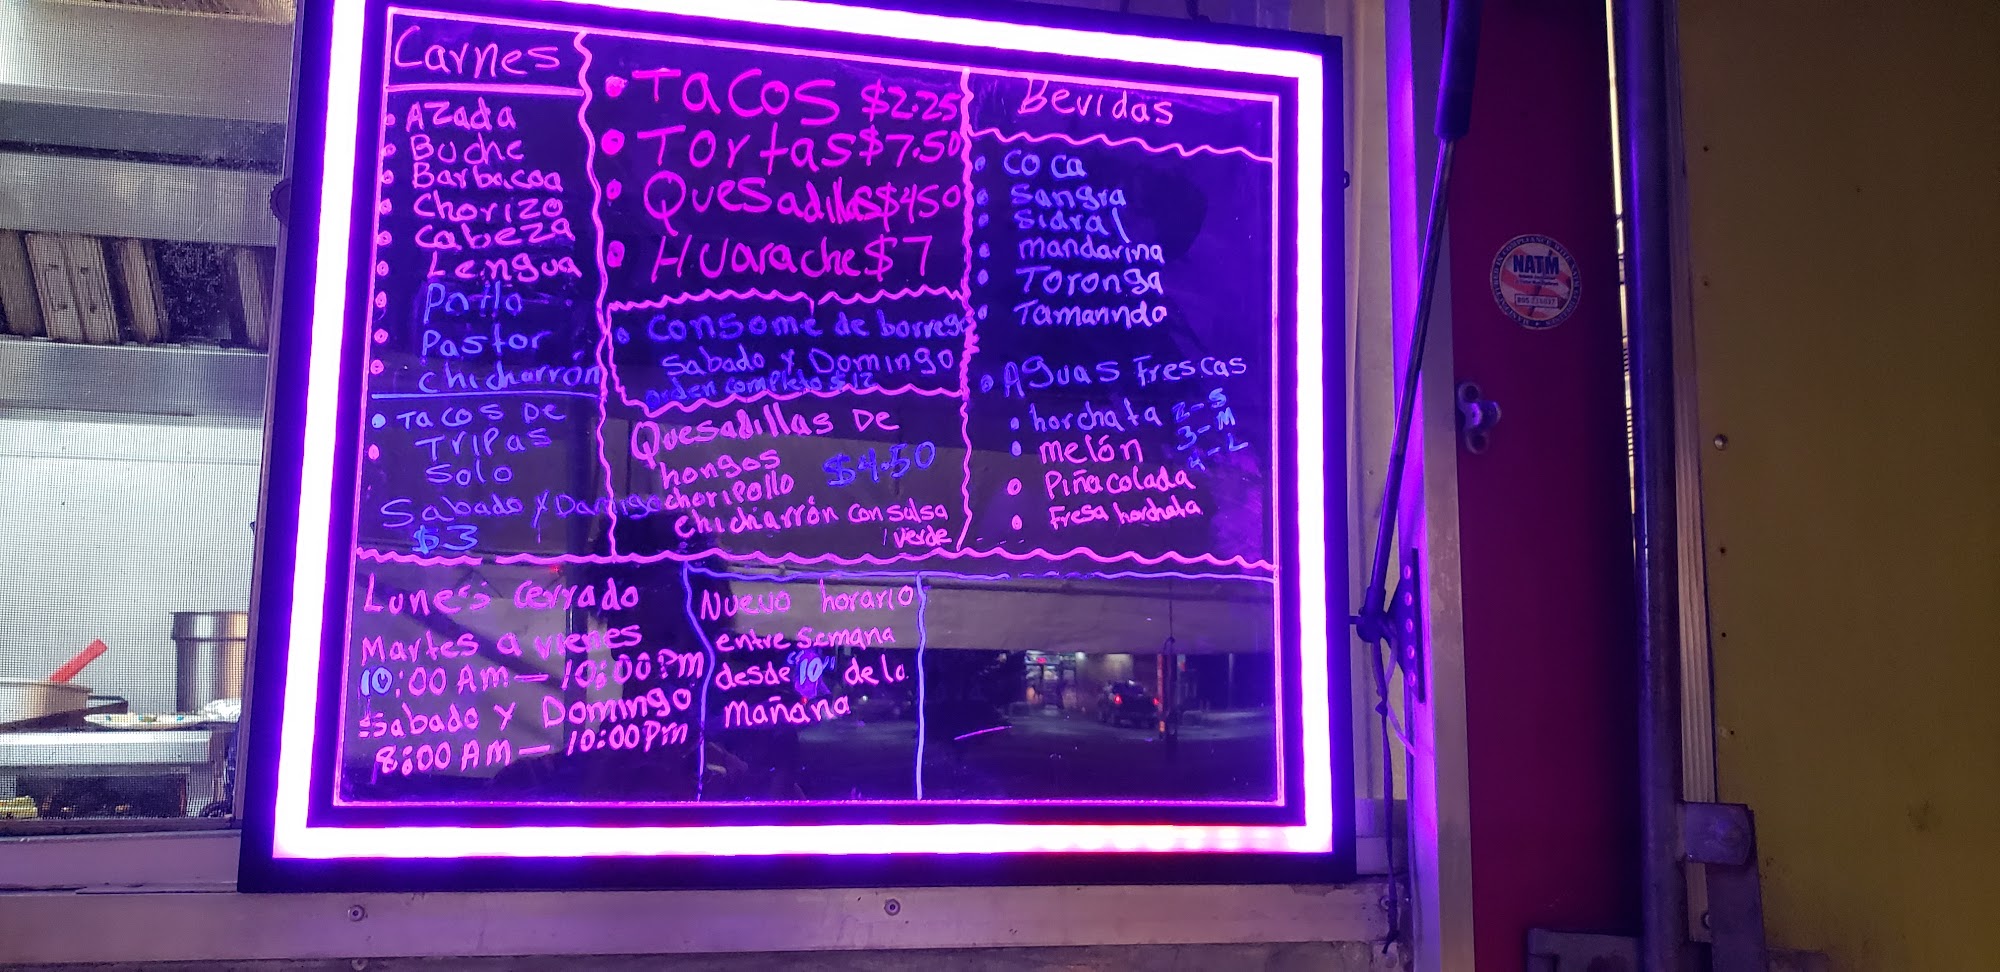 Carnes
Azada
Buche
Barbacoa
Chorizo
Cabeza
Lengua
Pollo
Pastor
Chicharrón
Tacos De
Tripas
Solo
Sabado y Domingo
$3
Tacos $2.25
Tortas $7.50
Quesadillas $4.50
Huarache $7
Consome de borrego
Sabado y Domingo
orden completo $12
Quesadillas De
hongos
choripollo
$4.50
chicharrón con salsa
verde
Bevidas
Coca
Sangra
Sidral
mandarina
Toronga
Tamarindo
Aguas Frescas
horchata 2-S
3-M
melón
4-L
Piña colada
Fresa horchata
Lunes cerrado
Martes a vienes
10:00 Am — 10:00 Pm
Sabado y Domingo
8:00 AM — 10:00 Pm
Nuevo horario
entre semana
desde "10" de la
mañana
NATM